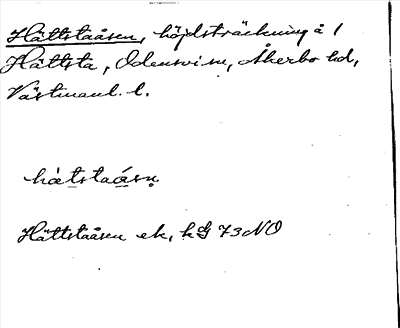 Hättstaåsen, höjdsträckning å 1
Hättsta, Odensvi sn, Åkerbo hd,
Västmanl. l.
hàtstaåsn̥
Hättstaåsen ek, 73 NO